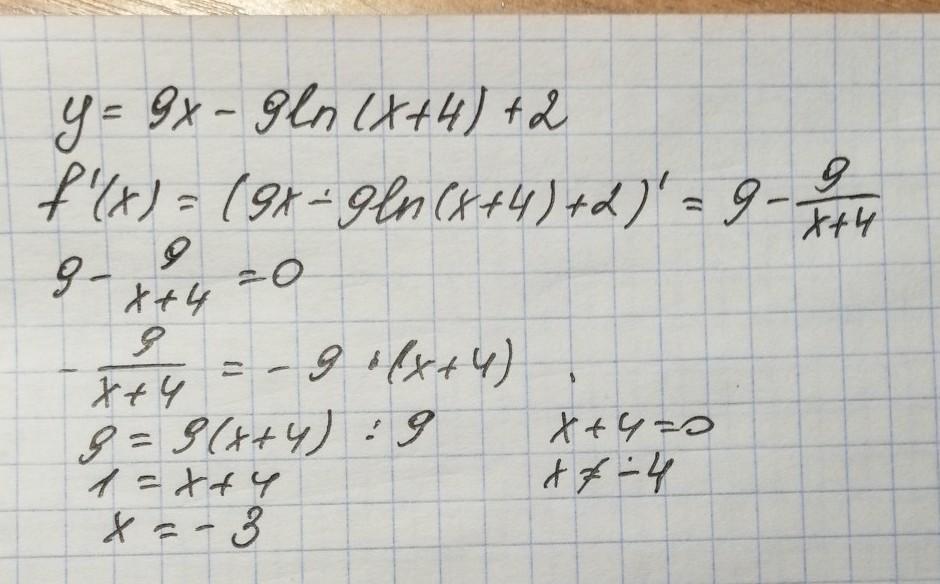 y = 9x - 9ln(x+4) + 2
f'(x) = (9x - 9ln(x+4) + 2)' = 9 - 9/(x+4)
9 - 9/(x+4) = 0
- 9/(x+4) = - 9 · (x+4)
9 = 9(x+4) : 9
x+4=0
1 = x+4
x ≠ -4
x = - 3